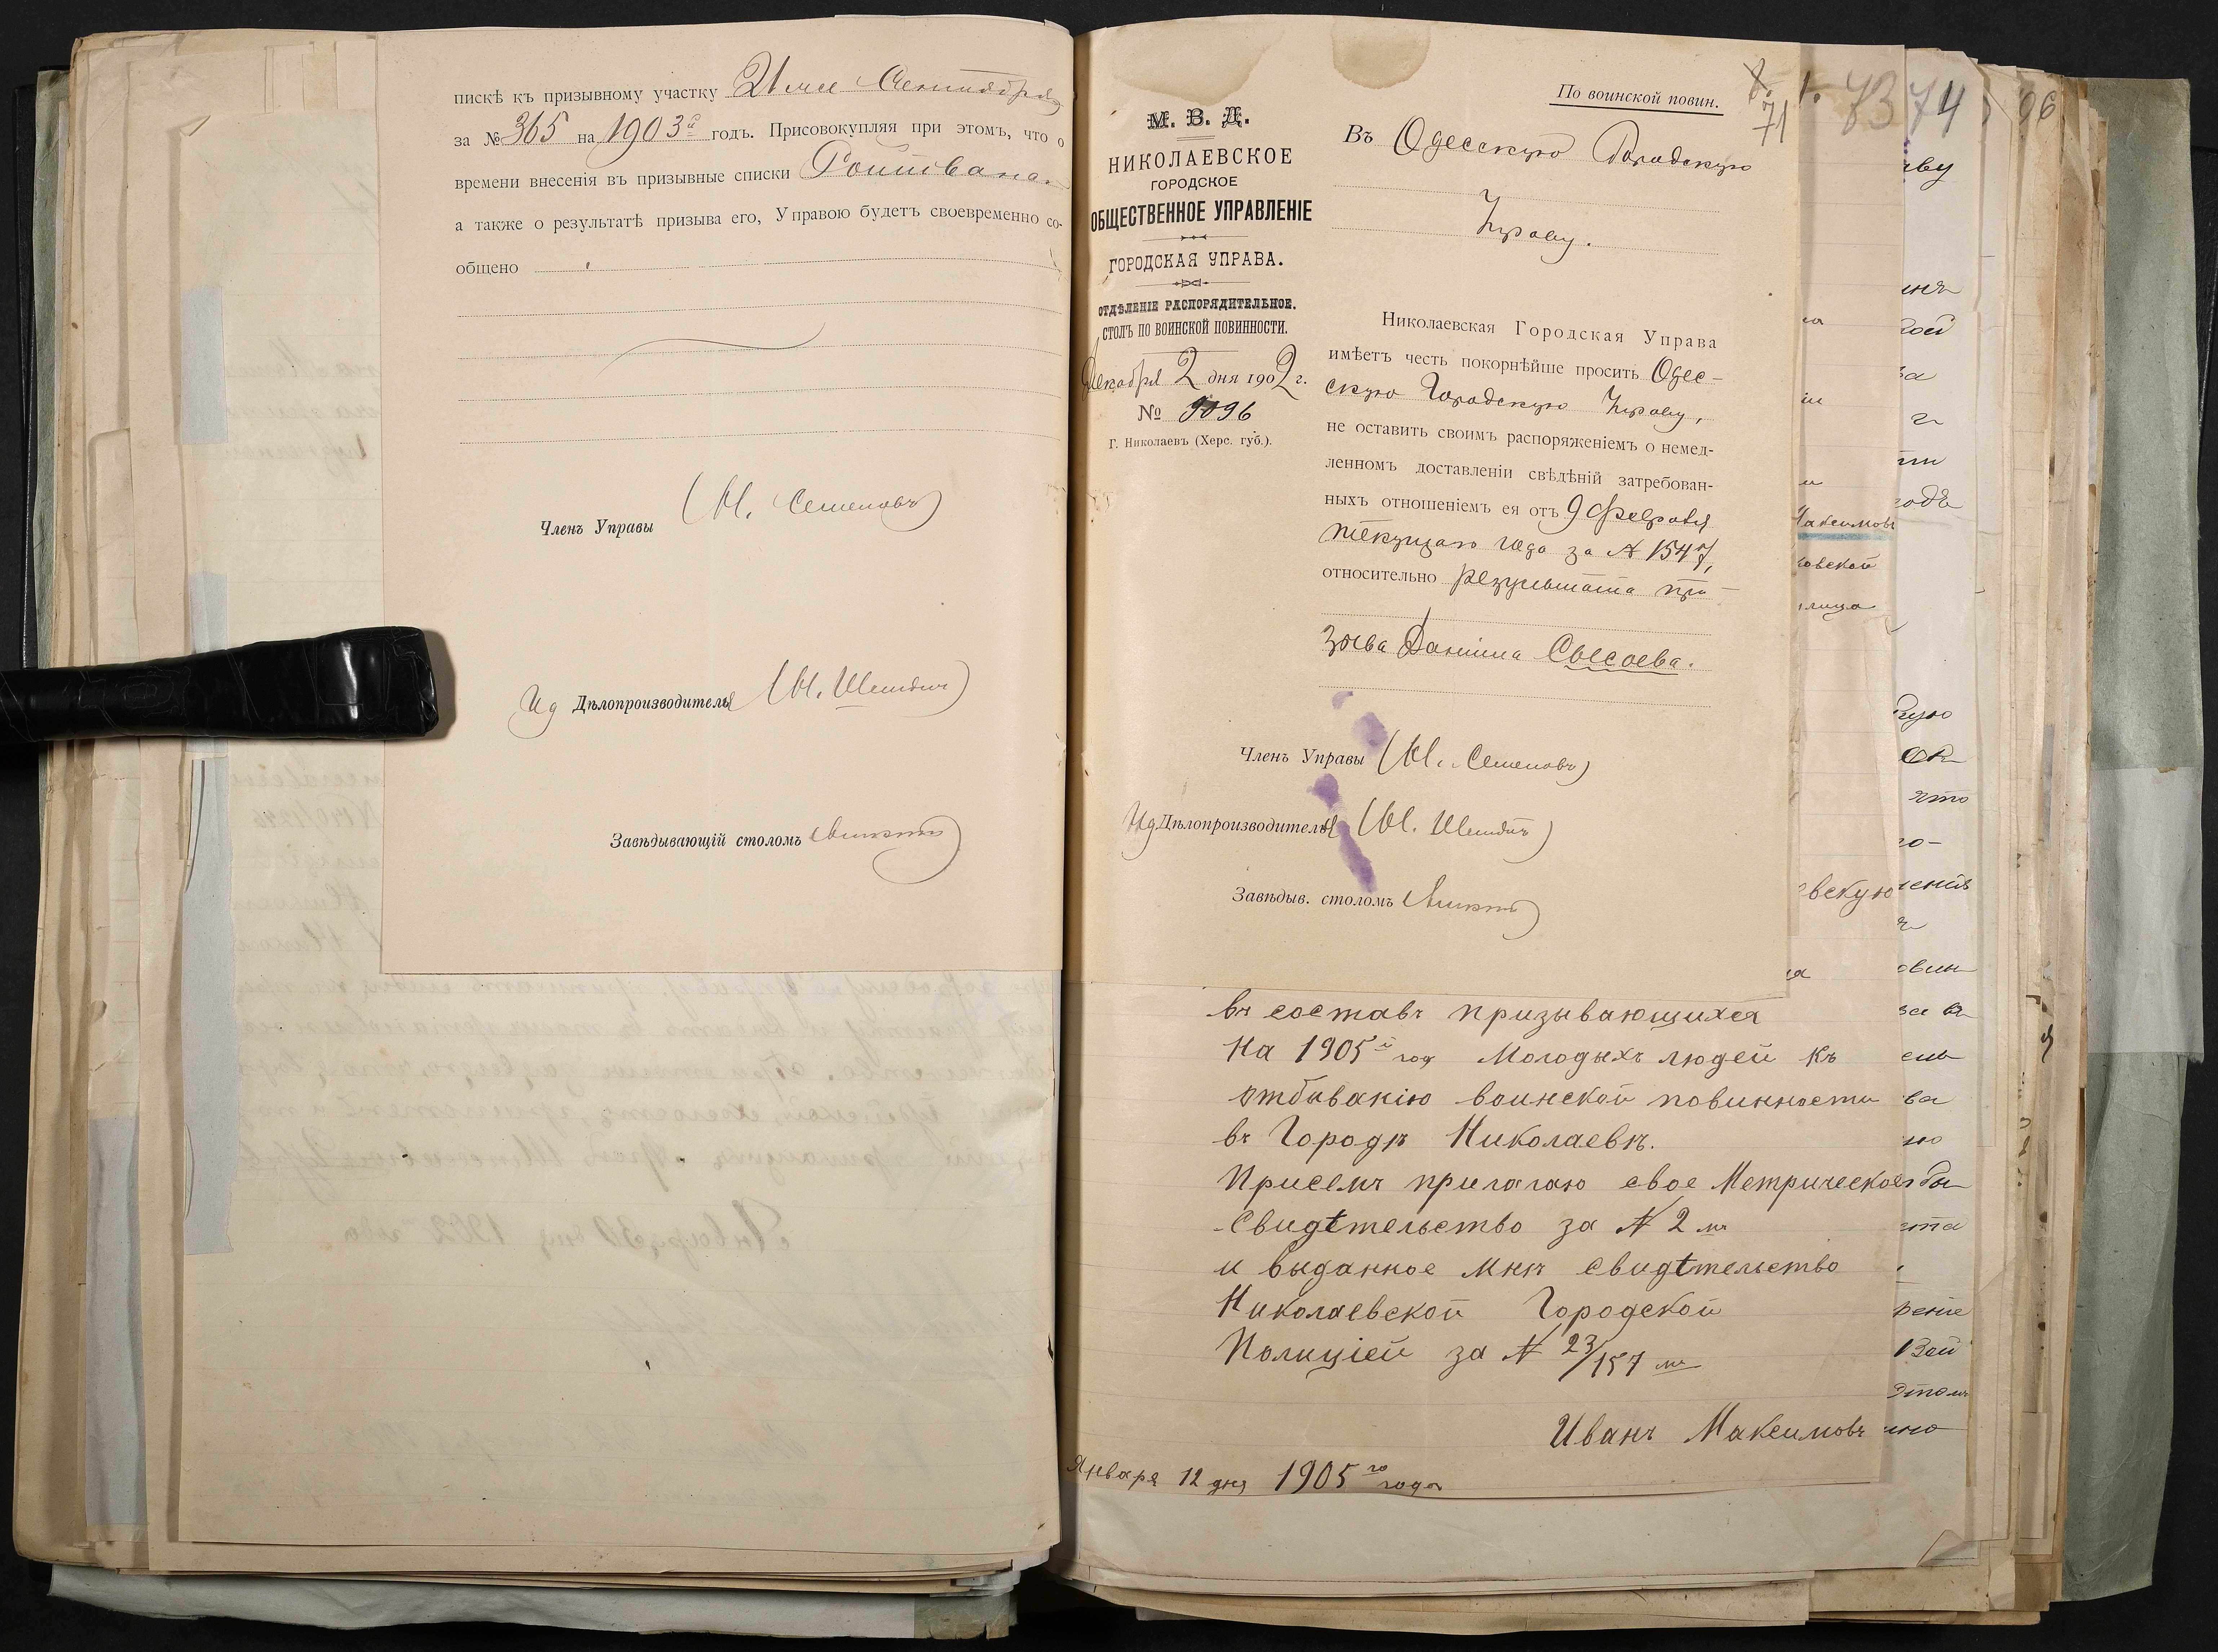 пискѣ къ призывному участку 21 мее Сентября
за № 365 на 1903й годъ. Присовокупляя при этомъ, что о
времени внесенія въ призывные списки
а также о результатѣ призыва его, Управою будетъ своевременно со-
общено
Членъ Управы (И. Семеновъ)
Ид Дѣлопроизводителя
Завѣдывающій столомъ
По воинской повин.
71
73 74
96
М. В. Д.
НИКОЛАЕВСКОЕ
ГОРОДСКОЕ
ОБЩЕСТВЕННОЕ УПРАВЛЕНІЕ
ГОРОДСКАЯ УПРАВА.
ОТДѢЛЕНІЕ РАСПОРЯДИТЕЛЬНОЕ.
СТОЛЪ ПО ВОИНСКОЙ ПОВИННОСТИ.
Декабря 2 дня 1902 г.
№ 9096
Г. Николаевъ (Херс. губ.).
Въ Одесскую Городскую
Управу.
Николаевская Городская Управа
имѣетъ честь покорнѣйше просить Одес-
скую Городскую Управу,
не оставить своимъ распоряженіемъ о немед-
ленномъ доставленіи свѣдѣній затребован-
ныхъ отношеніемъ ея отъ 9 Февраля
текущаго года за № 1547,
относительно результата при-
зыва Даніила Сысоева.
Членъ Управы (И. Семеновъ)
Ид Дѣлопроизводителя
Завѣдыв. столомъ
въ составъ призывающихся
На 1905й год Молодыхъ людей Къ
отбыванію воинской повинности
въ Городѣ Николаевѣ.
Присемъ прилагаю свое Метрическое
Свидѣтельство за № 2 мъ
и выданное мнѣ свидѣтельство
Николаевской Городской
Полиціей за № 23/157 мъ
Иванъ Максимовъ
Января 12 дня 1905го года